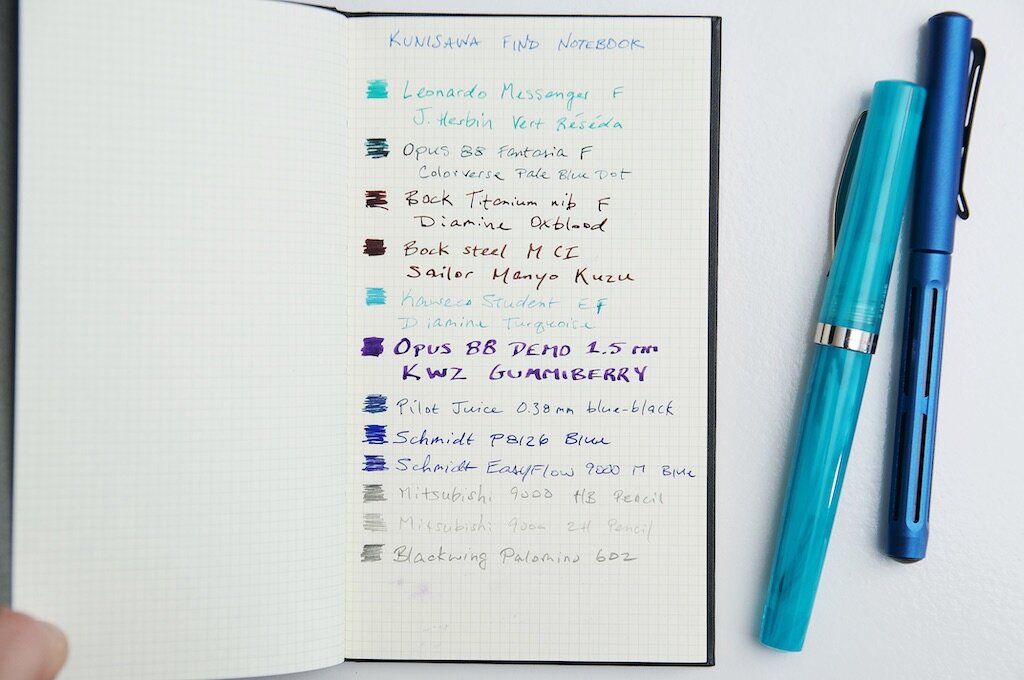 KUNISAWA FIND NOTEBOOK
Leonardo Messenger F
J. Herbin Vert Réséda
Opus 88 Fantasia F
Colorverse Pale Blue Dot
Bock Titanium nib F
Diamine Oxblood
Bock steel M CI
Sailor Manyo Kuzu
Kaweco Student EF
Diamine Turquoise
OPUS 88 DEMO 1.5 mm
KWZ GUMMIBERRY
Pilot Juice 0.38mm blue-black
Schmidt P8126 Blue
Schmidt EasyFlow 9000 M Blue
Mitsubishi 9000 HB Pencil
Mitsubishi 9000 2H Pencil
Blackwing Palomino 602